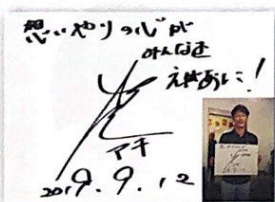 思いやりの心が
みんなを
えがおに!
アキ
2019.9.12